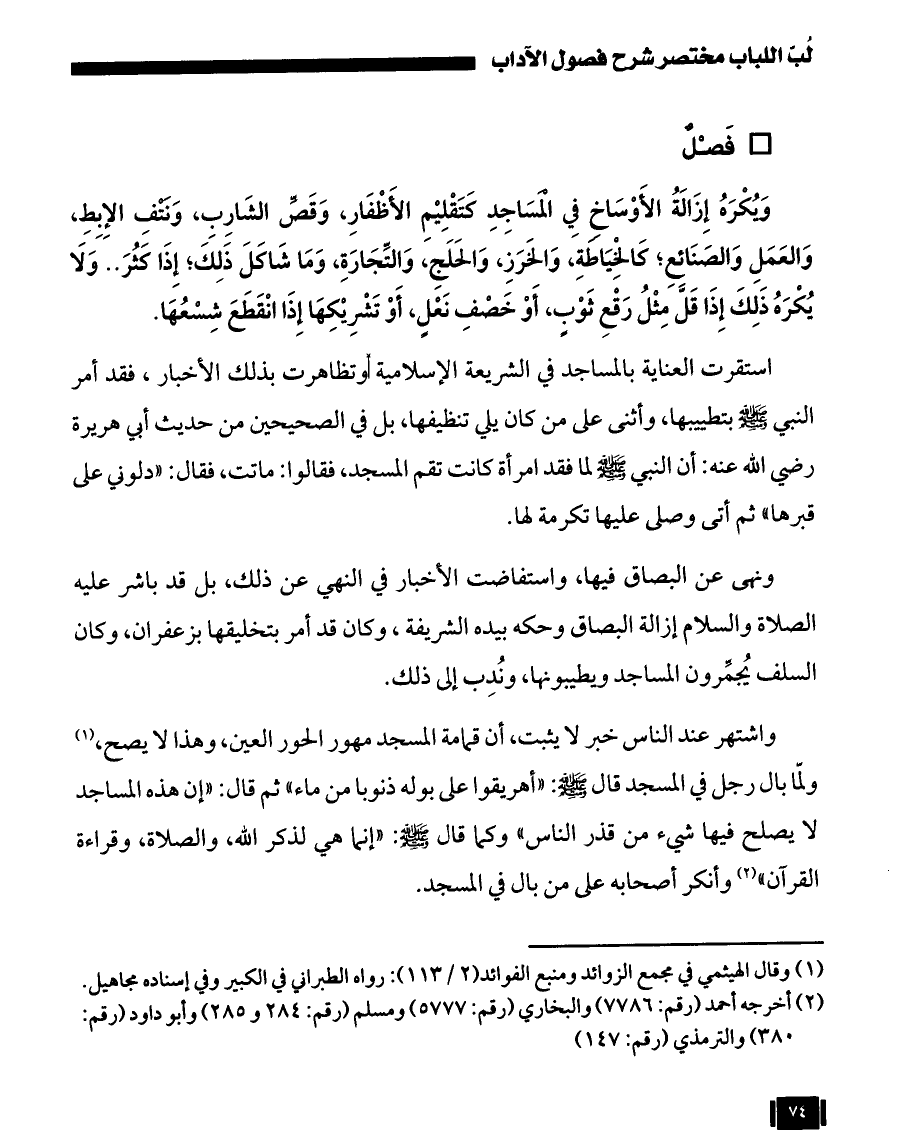 لُبّ اللباب مختصر شرح فصول الآداب
□ فَصْلٌ
وَيُكْرَهُ إِزَالَةُ الأَوْسَاخِ فِي الْمَسَاجِدِ كَتَقْلِيْمِ الأَظْفَارِ، وَقَصِّ الشَارِبِ، وَنَتْفِ الإِبِطِ،
وَالعَمَلِ وَالصَنَائعِ؛ كَالخِيَاطَةِ، وَالخَرَزِ، وَالحَلَجِ، وَالتِّجَارَةِ، وَمَا شَاكَلَ ذَلِكَ؛ إِذَا كَثُرَ.. وَلَا
يُكْرَهُ ذَلِكَ إِذَا قَلَّ مِثْلُ رَقْعِ ثَوْبٍ، أَوْ خَصْفِ نَعْلٍ، أَوْ تَشْرِيْكِهَا إِذَا انْقَطَعَ شِسْعُهَا.
استقرت العناية بالمساجد في الشريعة الإسلامية أوتظاهرت بذلك الأخبار ، فقد أمر
النبي ﷺ بتطييبها، وأثنى على من كان يلي تنظيفها، بل في الصحيحين من حديث أبي هريرة
رضي الله عنه: أن النبي ﷺ لما فقد امرأة كانت تقم المسجد، فقالوا: ماتت، فقال: «دلوني على
قبرها» ثم أتى وصلى عليها تكرمة لها.
ونهى عن البصاق فيها، واستفاضت الأخبار في النهي عن ذلك، بل قد باشر عليه
الصلاة والسلام إزالة البصاق وحكه بيده الشريفة ، وكان قد أمر بتخليقها بزعفران، وكان
السلف يُجمِّرون المساجد ويطيبونها، ونُدِب إلى ذلك.
واشتهر عند الناس خبر لا يثبت، أن قمامة المسجد مهور الحور العين، وهذا لا يصح،(١)
ولمّا بال رجل في المسجد قال ﷺ: «أهريقوا على بوله ذنوبا من ماء» ثم قال: «إن هذه المساجد
لا يصلح فيها شيء من قذر الناس» وكما قال ﷺ: «إنما هي لذكر الله، والصلاة، وقراءة
القرآن»(٢) وأنكر أصحابه على من بال في المسجد.
(١) وقال الهيثمي في مجمع الزوائد ومنبع الفوائد(٢/ ١١٣): رواه الطبراني في الكبير وفي إسناده مجاهيل.
(٢) أخرجه أحمد (رقم: ٧٧٨٦) والبخاري (رقم: ٥٧٧٧) ومسلم (رقم: ٢٨٤ و ٢٨٥) وأبو داود (رقم:
٣٨٠) والترمذي (رقم: ١٤٧)
٧٤